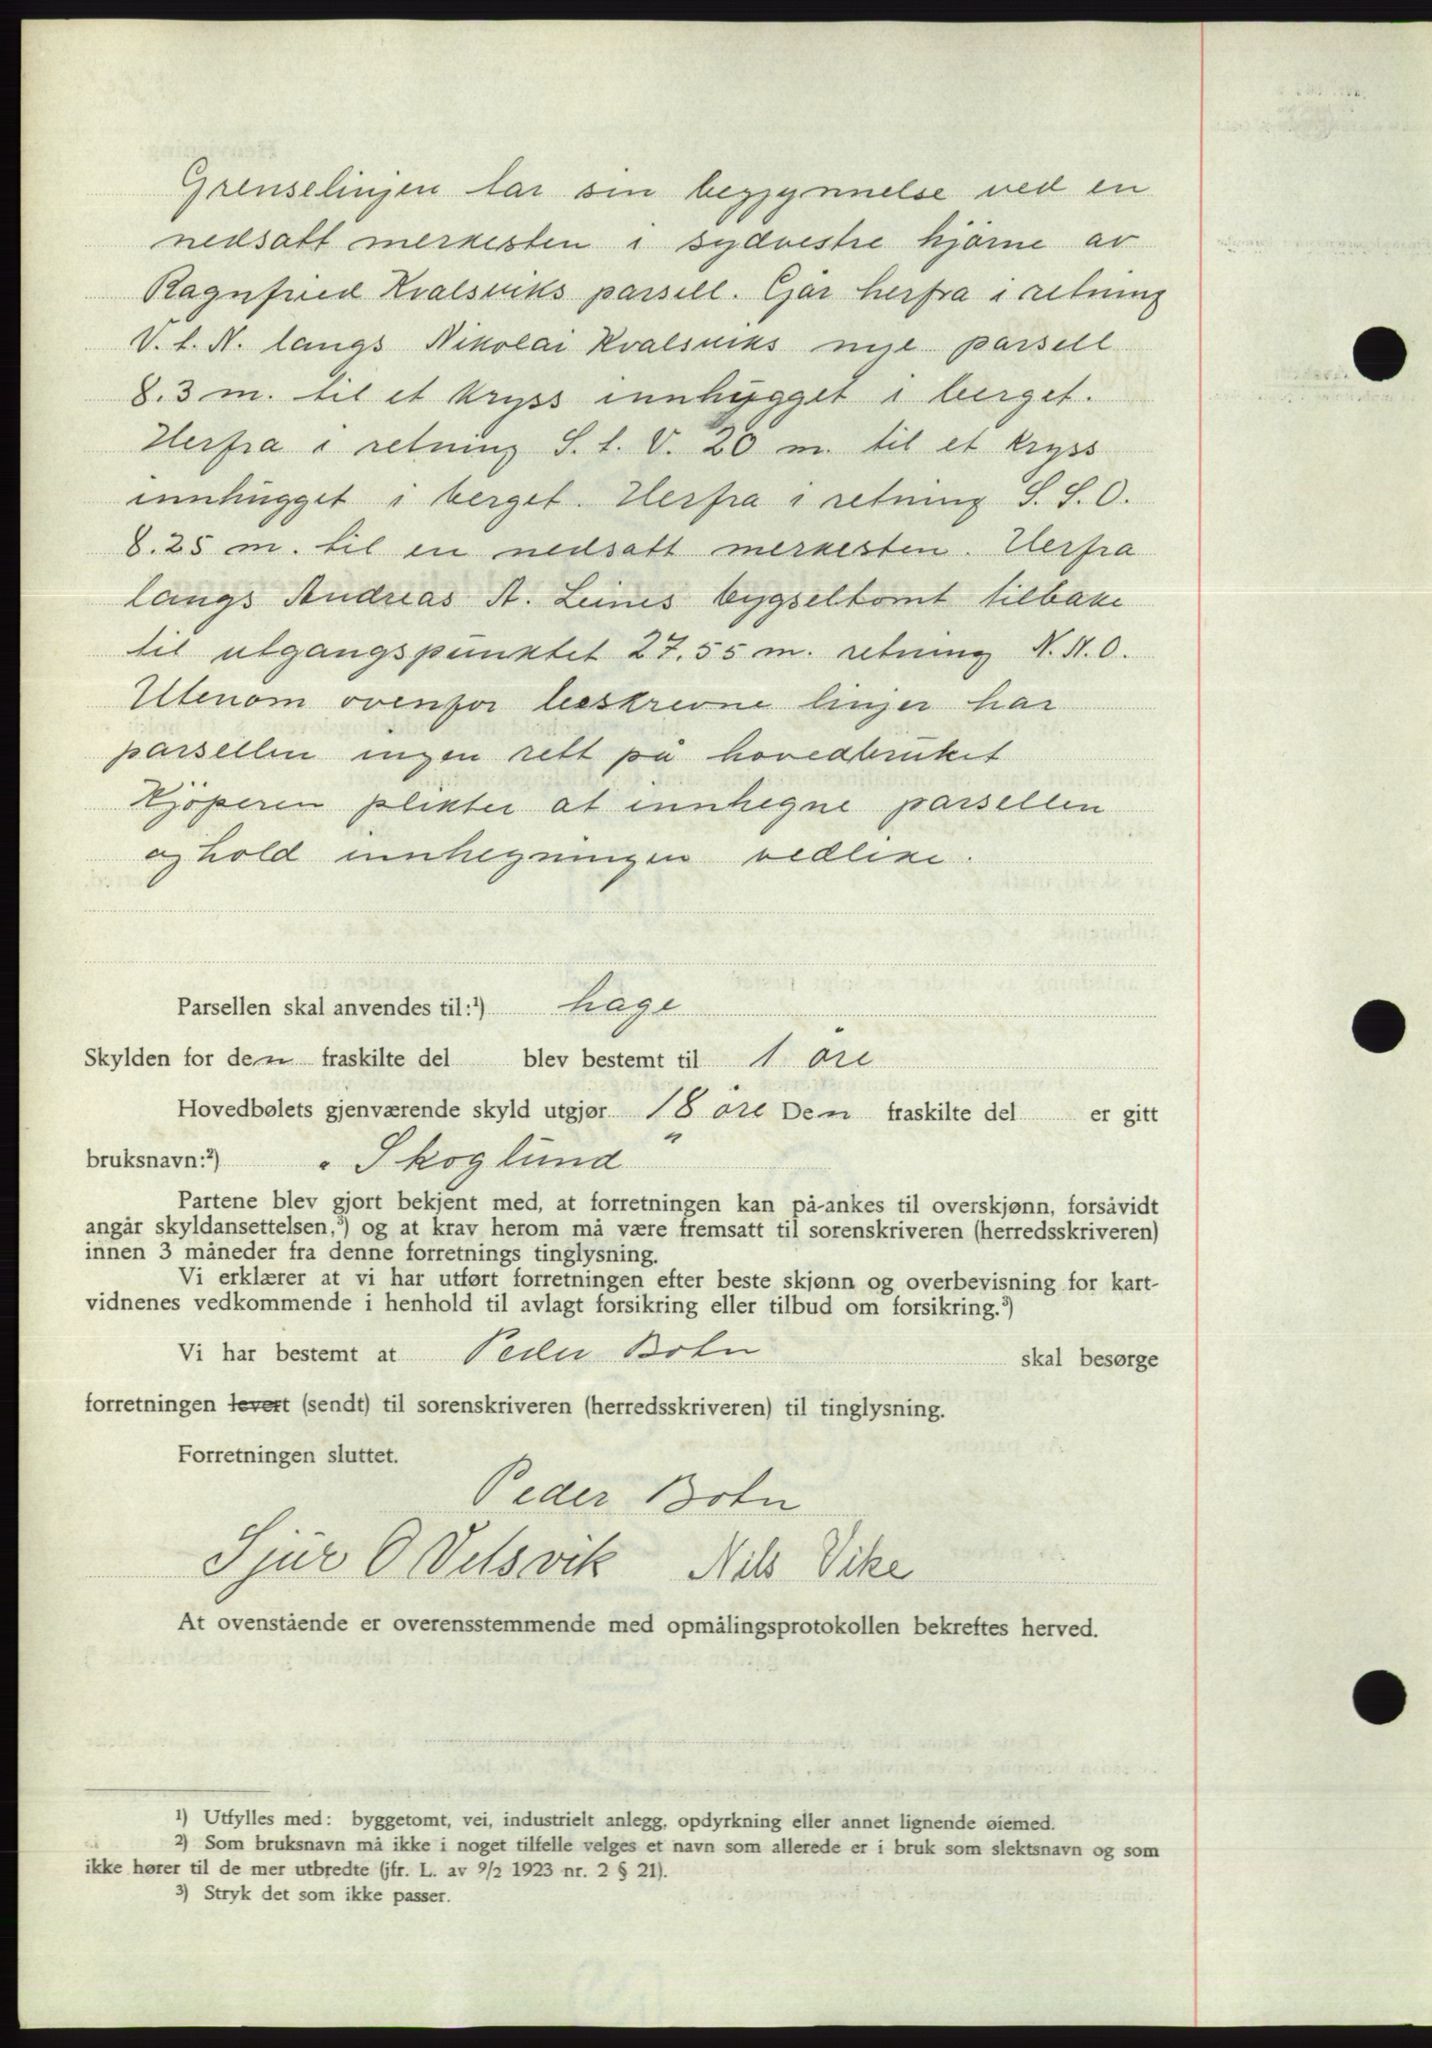 Grenselinjen tar sin begynnelse ved en
nedsatt merkesten i sydvestre hjørne av
Ragnfried Kvalsviks parsell. Går herfra i retning
V. t. N. langs Nikolai Kvalsviks nye parsell
8.3 m. til et kryss innhugget i berget.
Herfra i retning S. t. V. 20 m. til et kryss
innhugget i berget. Herfra i retning S. S. O.
8.25 m. til en nedsatt merkesten. Herfra
langs Andreas A. Leines bygseltomt tilbake
til utgangspunktet 27.55 m. retning N. N. O.
Utenom ovenfor beskrevne linjer har
parsellen ingen rett på hovedbruket
Kjöperen plikter at innhegne parsellen
og hold innhegningen vedlike.
Parsellen skal anvendes til:¹) hage
Skylden for den fraskilte del blev bestemt til 1 øre
Hovedbølets gjenværende skyld utgjør 18 øre Den fraskilte del er gitt
bruksnavn:²) "Skoglund"
Partene blev gjort bekjent med, at forretningen kan på-ankes til overskjønn, forsåvidt
angår skyldansettelsen,³) og at krav herom må være fremsatt til sorenskriveren (herredsskriveren)
innen 3 måneder fra denne forretnings tinglysning.
Vi erklærer at vi har utført forretningen efter beste skjønn og overbevisning for kart-
vidnenes vedkommende i henhold til avlagt forsikring eller tilbud om forsikring.³)
Vi har bestemt at Peder Botn skal besørge
forretningen levert (sendt) til sorenskriveren (herredsskriveren) til tinglysning.
Forretningen sluttet.
Peder Botn
Sjur O Velsvik Nils Vike
At ovenstående er overensstemmende med opmålingsprotokollen bekreftes herved.
¹) Utfylles med: byggetomt, vei, industrielt anlegg, opdyrkning eller annet lignende øiemed.
²) Som bruksnavn må ikke i noget tilfelle velges et navn som allerede er i bruk som slektsnavn og som
ikke hører til de mer utbredte (jfr. L. av 9/2 1923 nr. 2 § 21).
³) Stryk det som ikke passer.